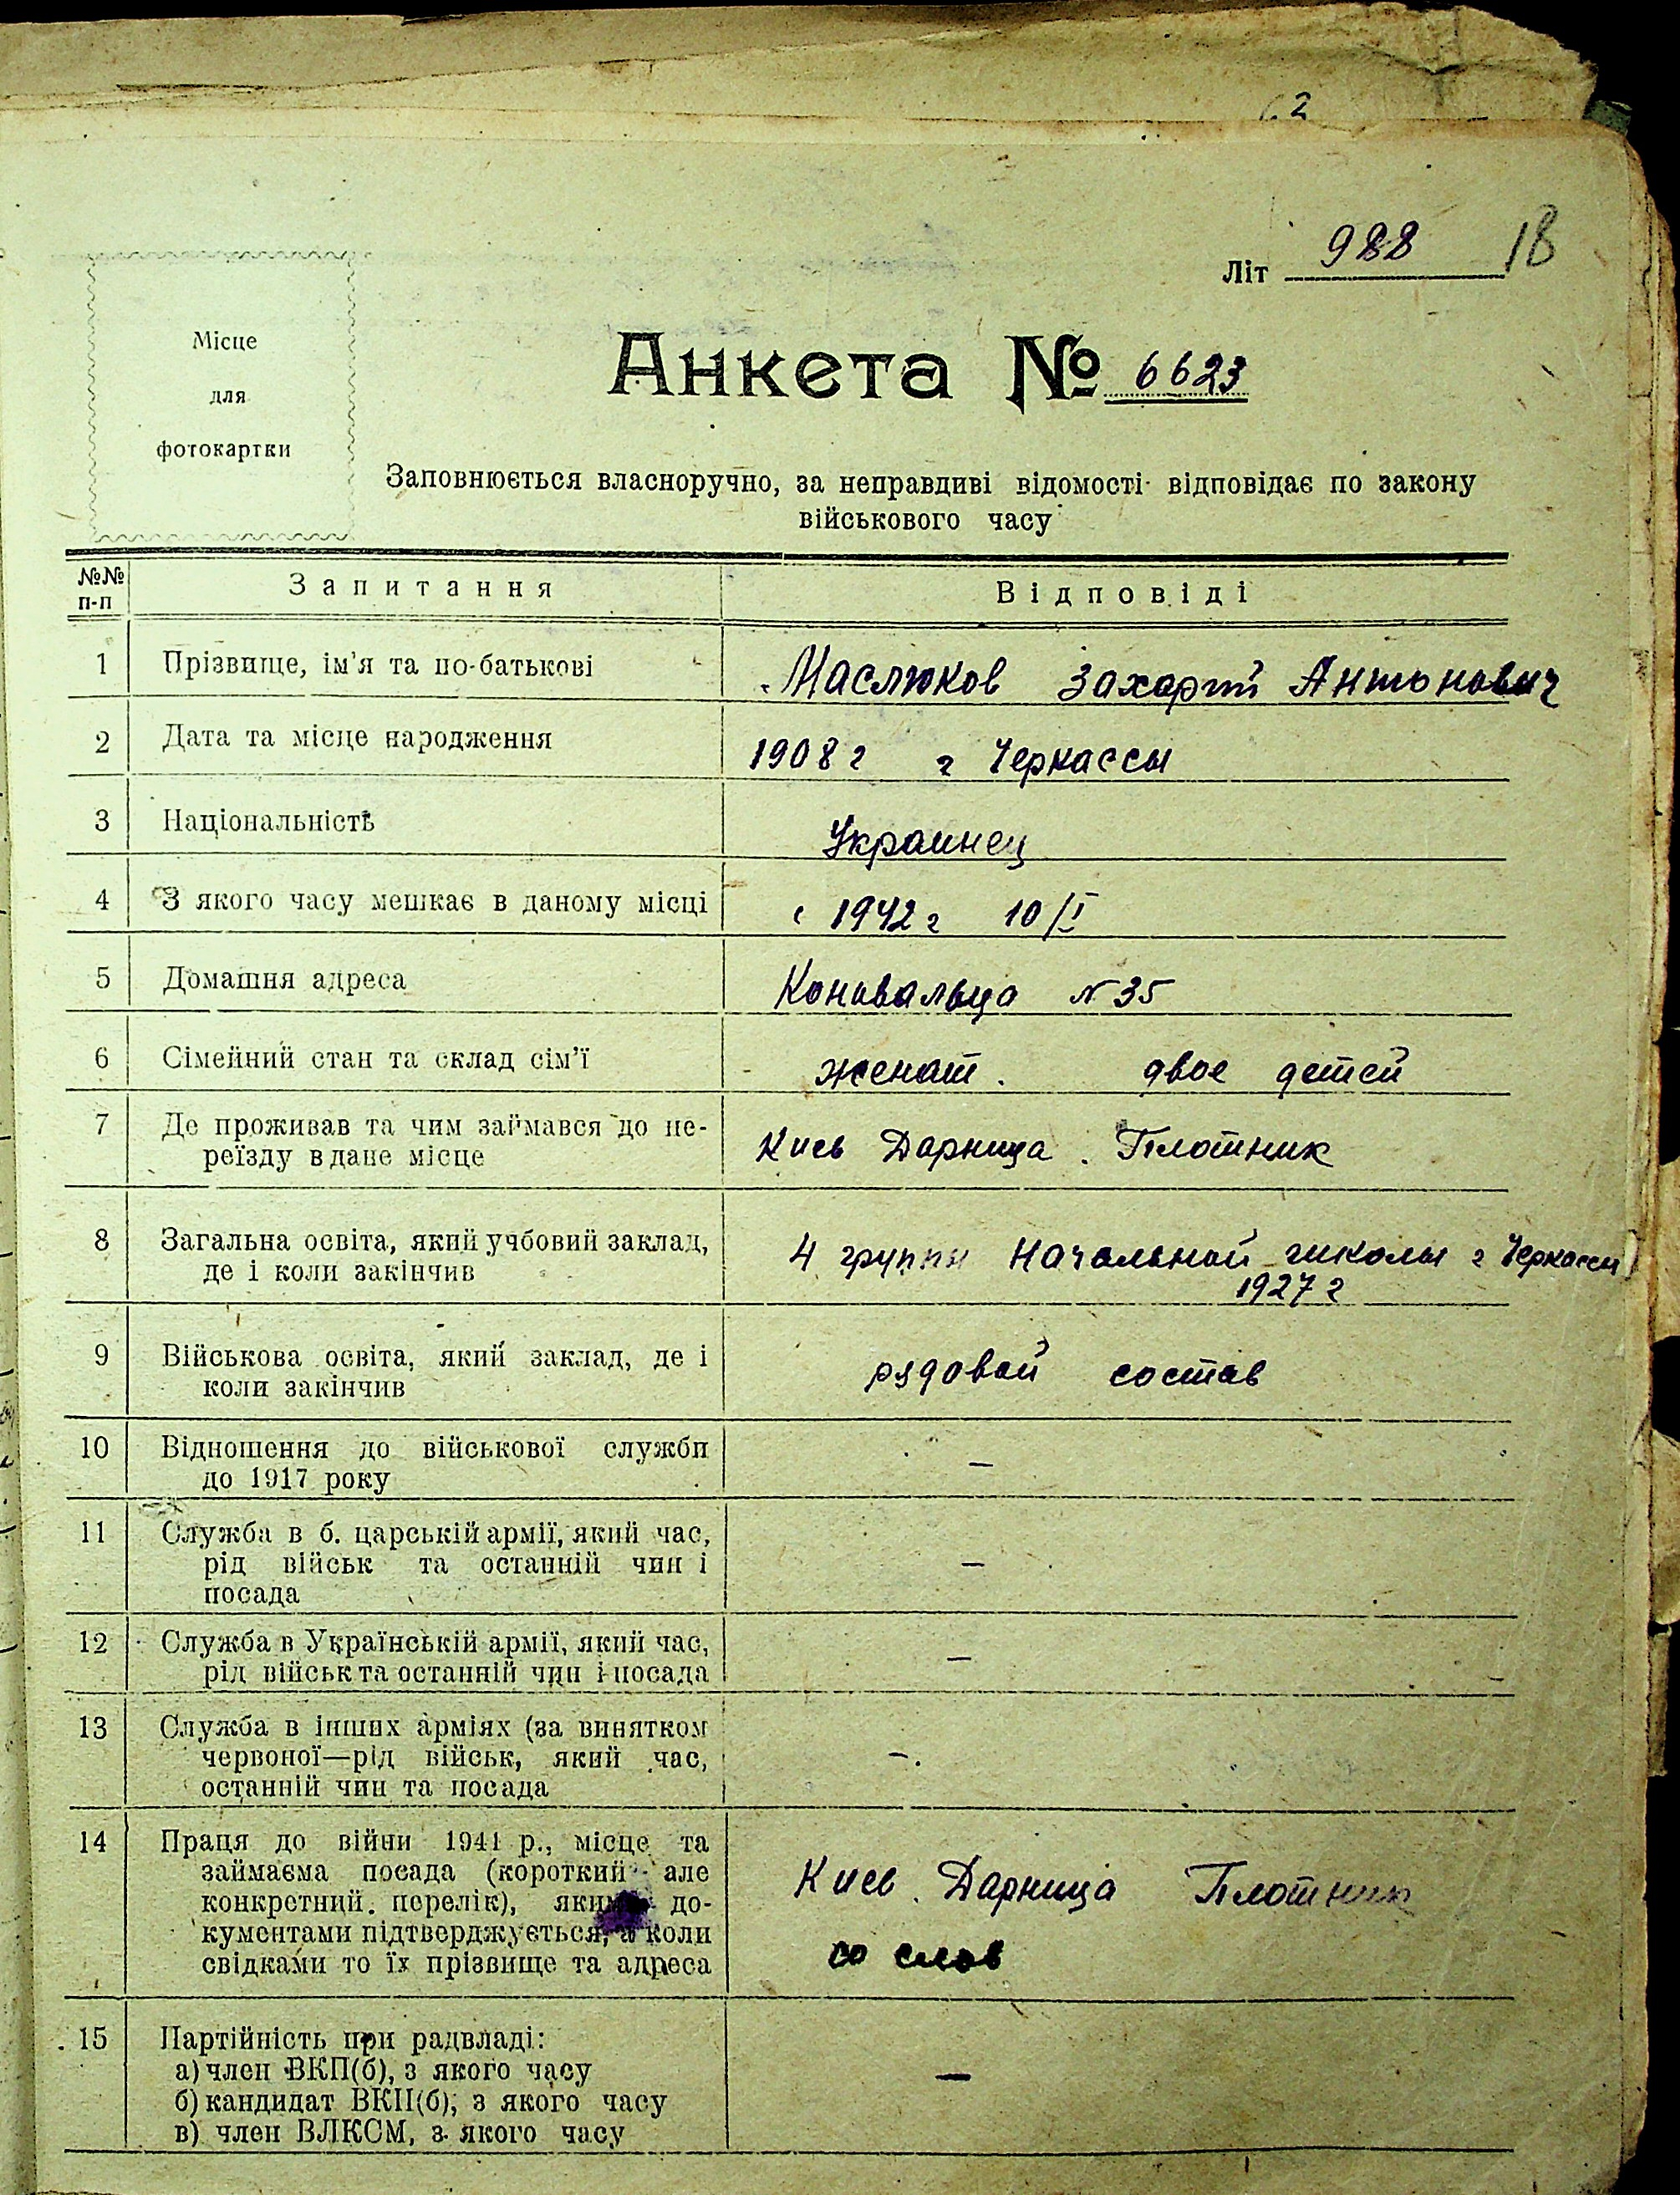 62
Літ 988 18
Місце
для
фотокартки
Анкета № 6623
Заповнюється власноручно, за неправдиві відомості відповідає по закону
військового часу
№№
п-п
Запитання
Відповіді
1 Прізвище, ім'я та по-батькові Маслюков Захарий Антонович
2 Дата та місце народження 1908 г г Черкассы
3 Національність Украинец
4 З якого часу мешкає в даному місці с 1942 г 10/I
5 Домашня адреса Коновальца № 35
6 Сімейний стан та склад сім'ї женат. двое детей
7 Де проживав та чим займався до пе-
реїзду в дане місце
Киев Дарница. Плотник
8 Загальна освіта, який учбовий заклад,
де і коли закінчив
4 группы Начальной школы г Черкассы
1927 г
9 Військова освіта, який заклад, де і
коли закінчив
рядовой состав
10 Відношення до військової служби
до 1917 року
—
11 Служба в б. царській армії, який час,
рід військ та останній чин і
посада
—
12 Служба в Українській армії, який час,
рід військ та останній чин і посада
—
13 Служба в інших арміях (за винятком
червоної—рід військ, який час,
останній чин та посада
—.
14 Праця до війни 1941 р., місце та
займаєма посада (короткий але
конкретний перелік), якими до-
кументами підтверджується, а коли
свідками то їх прізвище та адреса
Киев. Дарница Плотник
со слов
15 Партійність при радвладі:
а) член ВКП(б), з якого часу
б) кандидат ВКП(б), з якого часу
в) член ВЛКСМ, з якого часу
—